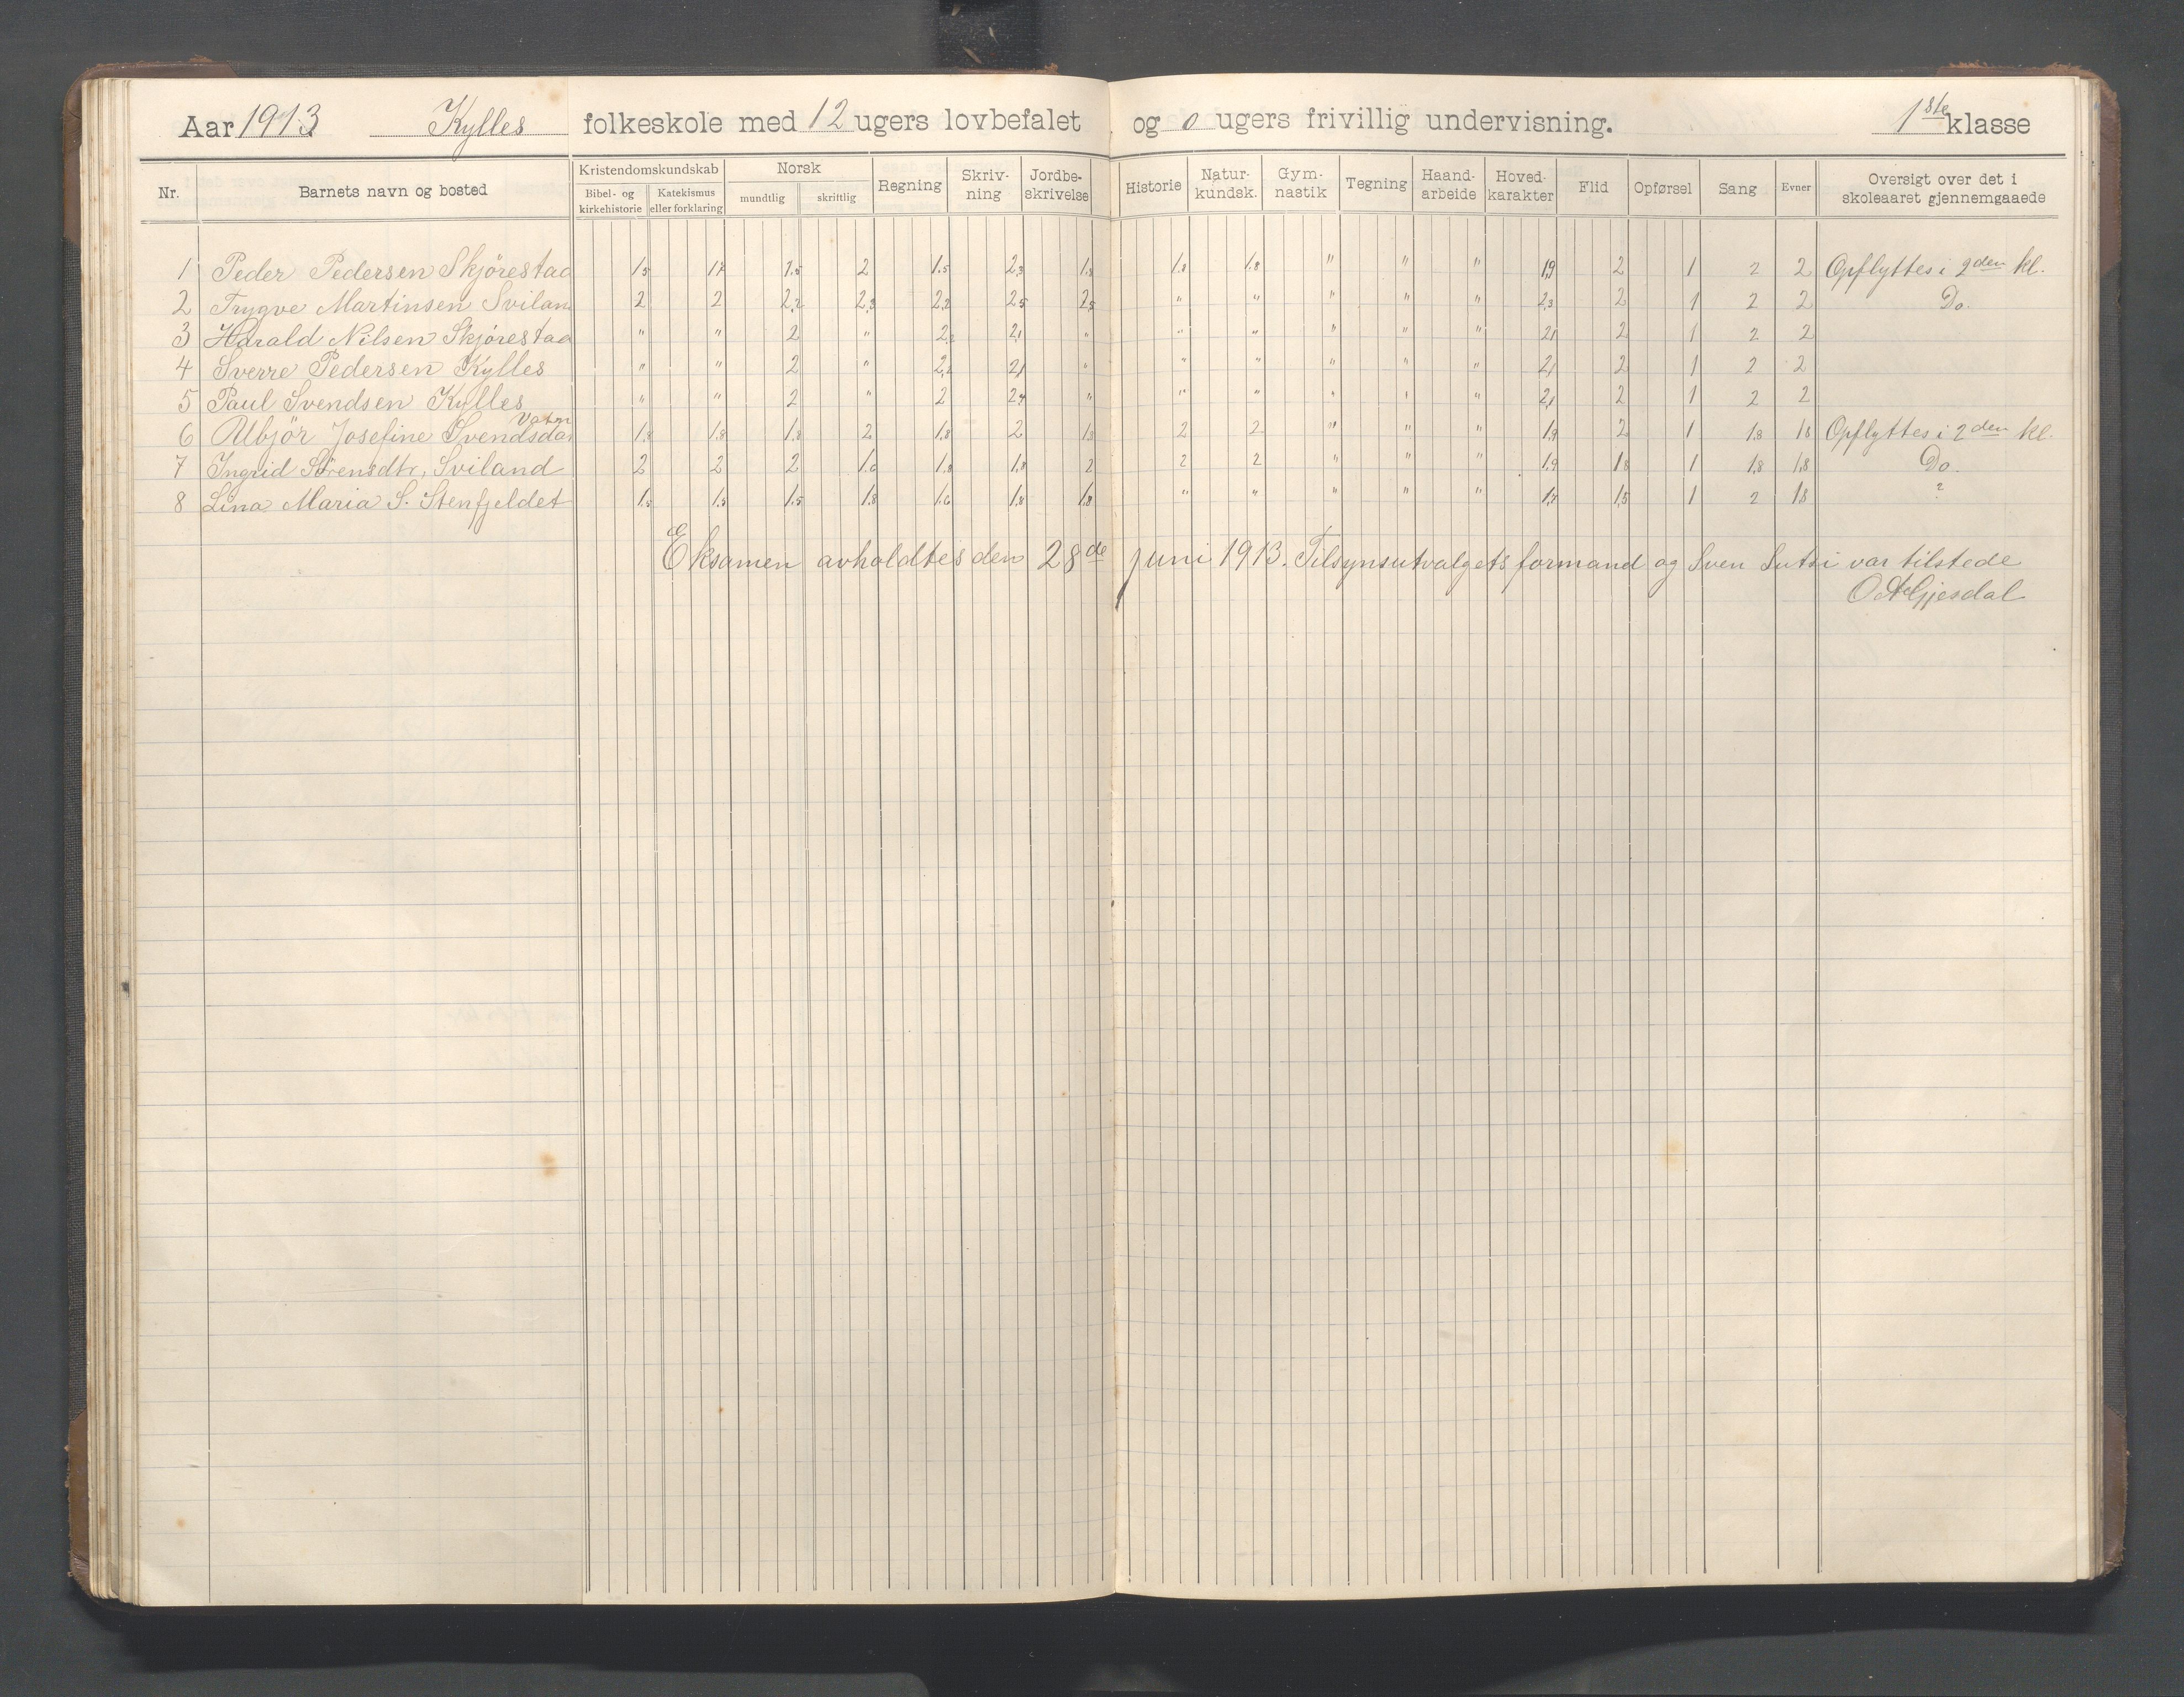 Aar 1913 Kylles folkeskole med 12 ugers lovbefalet og 0 ugers frivillig undervisning. 1ste klasse
Nr. Barnets navn og bosted Kristendomskundskab Bibel- og kirkehistorie Katekismus eller forklaring Norsk mundtlig skriftlig Regning Skriv-ning Jordbe-skrivelse Historie Natur-kundsk. Gym-nastik Tegning Haand-arbeide Hoved-karakter Flid Opførsel Sang Evner Oversigt over det i skoleaaret gjennemgaaede
1 Peder Pedersen Skjørestad 1.5 1.7 1.5 2 1.5 2,3 1.8 1.8 1.8 " " " 1,9 2 1 2 2 Opflyttes i 2den kl.
2 Trygve Martinsen Sviland 2 2 2,2 2,3 2,2 2,5 2,5 " " " " " 2,3 2 1 2 2 Do.
3 Harald Nilsen Skjørestad " " 2 " 2,2 2,1 " " " " " " 2,1 2 1 2 2
4 Sverre Pedersen Kylles " " 2 " 2,2 2,1 " " " " " " 2,1 2 1 2 2
5 Paul Svendsen Kylles " " 2 " 2 " " " " " " 2,1 2 1 2 2
Vatn
6 Albjör Josefine Svendsda 1.8 1.8 1.8 2 1.8 2 1.8 2 2 " " " 1,9 2 1 1.8 1.8 Opflyttes i 2den kl.
7 Ingrid Sörensdtr, Sviland 2 2 2 1.6 1.8 1,8 2 2 2 " " " 1,9 1.8 1 1,8 1,8 Do.
8 Lina Maria S. Stenfjeldet 1.5 1.5 1.5 1.8 1.6 1.8 1.8 " " " " " 1,7 1,5 1 2 1.8 ?
Eksamen avholdtes den 28de juni 1913. Tilsynsutvalgets formand og Sven Lutsi var tilstede
Gjesdal